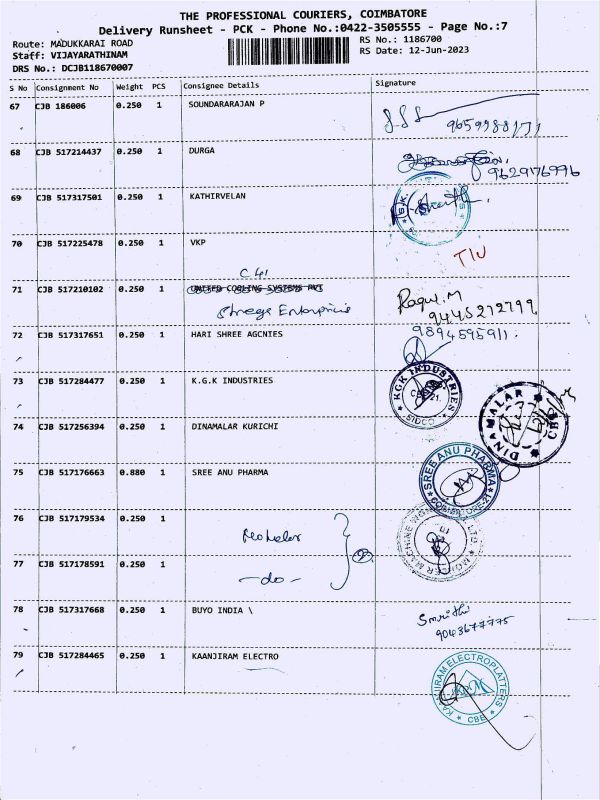 THE PROFESSIONAL COURIERS, COIMBATORE
Delivery Runsheet - PCK - Phone No.:0422-3505555 - Page No.:7
Route: MADUKKARAI ROAD
RS No.: 1186700
Staff: VIJAYARATHINAM
RS Date: 12-Jun-2023
DRS No.: DCJB118670007
S No Consignment No Weight PCS Consignee Details Signature
67 CJB 186006 0.250 1 SOUNDARARAJAN P
68 CJB 517214437 0.250 1 DURGA
9629176996
69 CJB 517317501 0.250 1 KATHIRVELAN
70 CJB 517225478 0.250 1 VKP
71 CJB 517210102 0.250 1 UNITED COOLING SYSTEMS PVT
Shreya Enterprises
Ragu.M
9445272799
72 CJB 517317651 0.250 1 HARI SHREE AGCNIES
9894595911.
73 CJB 517284477 0.250 1 K.G.K INDUSTRIES
KGK INDUSTRIES
SIDCO
74 CJB 517256394 0.250 1 DINAMALAR KURICHI
DINAMALAR
CBE
75 CJB 517176663 0.880 1 SREE ANU PHARMA
SREE ANU PHARMA
COIMBATORE-21
76 CJB 517179534 0.250 1
77 CJB 517178591 0.250 1
-do-
78 CJB 517317668 0.250 1 BUYO INDIA \
Smrithi
9043677775
79 CJB 517284465 0.250 1 KAANJIRAM ELECTRO
KAANJIRAM ELECTROPLATTERS
CBE